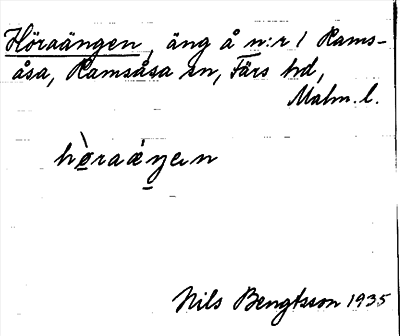 Höraängen, äng å n:r 1 Rams-
åsa, Ramsåsa sn, Färs hd,
Malm. l.
hø̀raáŋen
Nils Bengtsson 1935